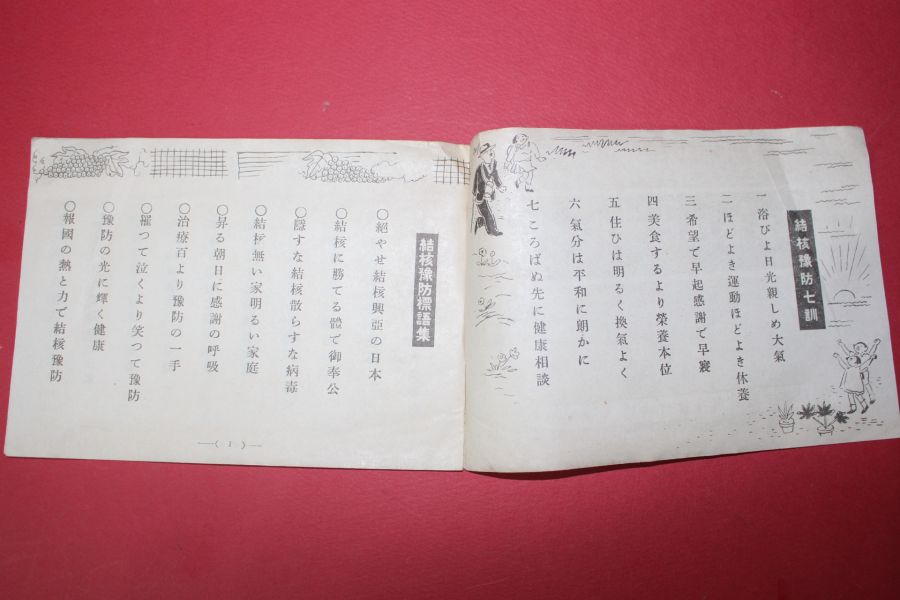 結核豫防七訓
一 浴びよ日光親しめ大氣
二 ほどよき運動ほどよき休養
三 希望で早起感謝で早寢
四 美食するより榮養本位
五 住ひは明るく換氣よく
六 氣分は平和に朗かに
七 ころばぬ先に健康相談
結核豫防標語集
○絕やせ結核興亞の日本
○結核に勝てる體で御奉公
○隱すな結核散らすな病毒
○結核無い家明るい家庭
○昇る朝日に感謝の呼吸
○治療百より豫防の一手
○罹つて泣くより笑つて豫防
○豫防の光に輝く健康
○報國の熱と力で結核豫防
—( 1 )—